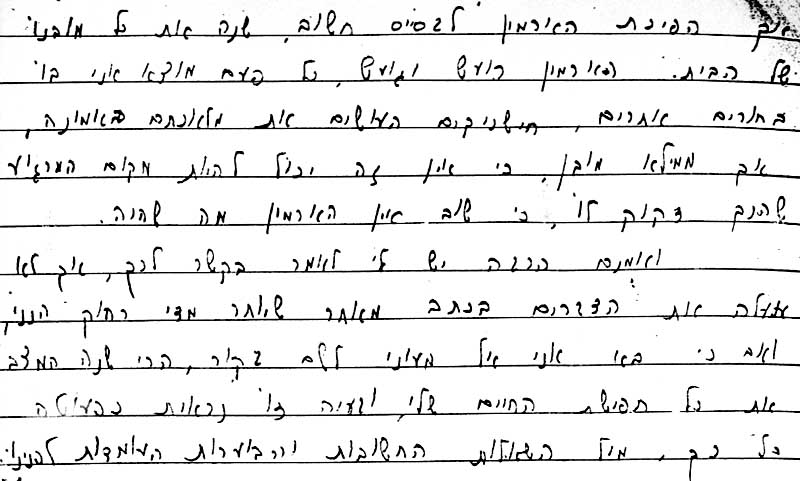 אך הפיכת הארמון לבסיס חשוב, שנה את כל מובנו
של הבית. הארמון רועש וגועש, כל פעם מוצא אני בו
בחורים אחרים, חישניקים העושים את מלאכתם באמונה,
אך ממילא מובן, כי אין זה יכול להיות מקום המרגוע
שהנך זקוק לו, כי שוב אין הארמון מה שהיה.
ואמנם הרבה יש לי לאמר בקשר לכך, אך לא
אעלה את הדברים בכתב מאחר שיותר מדי רחוק הנני,
ואב כי בא אני אל מעוני לשם בקור, הרי שנה המצב
את כל תפישת החיים שלי, ובעיה זו נראית כפעוטה
כל כך, מול השאלות החשובות והבוערות העומדות לפנינו.